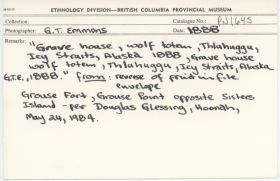 ETHNOLOGY DIVISION—BRITISH COLUMBIA PROVINCIAL MUSEUM
Collection: Catalogue No.: PN1645
Photographer: G.T. Emmons Date: 1888
Remarks:
"Grave house, wolf totem, Thluhuggu,
Icy Straits, Alaska 1888, Grave house
wolf totem, Thluhuggu, Icy Straits, Alaska
G.T.E., 1888." from: reverse of print in file
envelope
Grouse Fort, Grouse Point opposite Sisters
Island - per Douglas Glessing, Hoonah,
May 24, 1984.